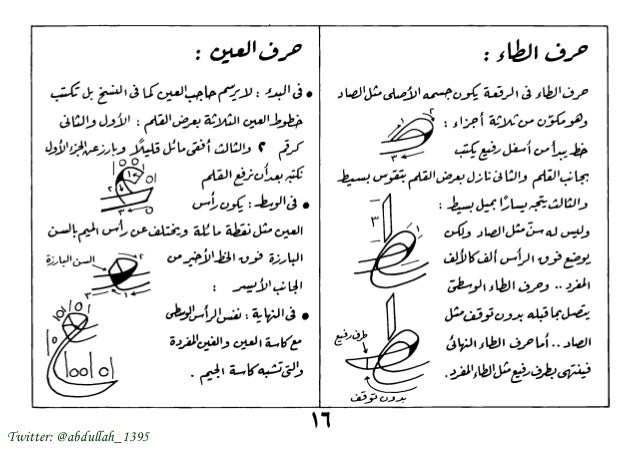 حرف الطاء :
حرف الطاء فى الرقعة يكون جسمه الأصلى مثل الصاد
وهو مكوّن من ثلاثة أجزاء :
خط يبدأ من أسفل رفيع يكتب
بجانب القلم والثانى نازل بعرض القلم بتقوس بسيط
والثالث يتجه يسارًا بميل بسيط :
وليس له سنّ مثل الصاد ولكن
يوضع فوق الرأس ألف كالألف
المفرد .. وحرف الطاء الوسطى
يتصل بما قبله بدون توقف مثل
الصاد .. أما حرف الطاء النهائى
فينتهى بطرف رفيع مثل الطاء المفرد .
طرف رفيع
بدون توقف
حرف العين :
• فى البدء : لا يرسم حاجب العين كما فى النسخ بل تكتب
خطوط العين الثلاثة بعرض القلم : الأول والثانى
كرقم ٢ والثالث أفقى مائل قليلًا وبارز عن الجزء الأول
تكتبه بعد أن ترفع القلم
• فى الوسط : يكون رأس
العين مثل نقطة مائلة ويختلف عن رأس الميم بالسن
البارزة فوق الخط الأخير من
الجانب الأيسر :
السن البارزة
• فى النهاية : نفس الرأس الوسطى
مع كاسة العين والغين المفردة
والتى تشبه كاسة الجيم .
١٦
Twitter: @abdullah_1395